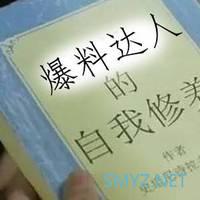 爆料达人
的
自我修养
作者
SMYZ.NET